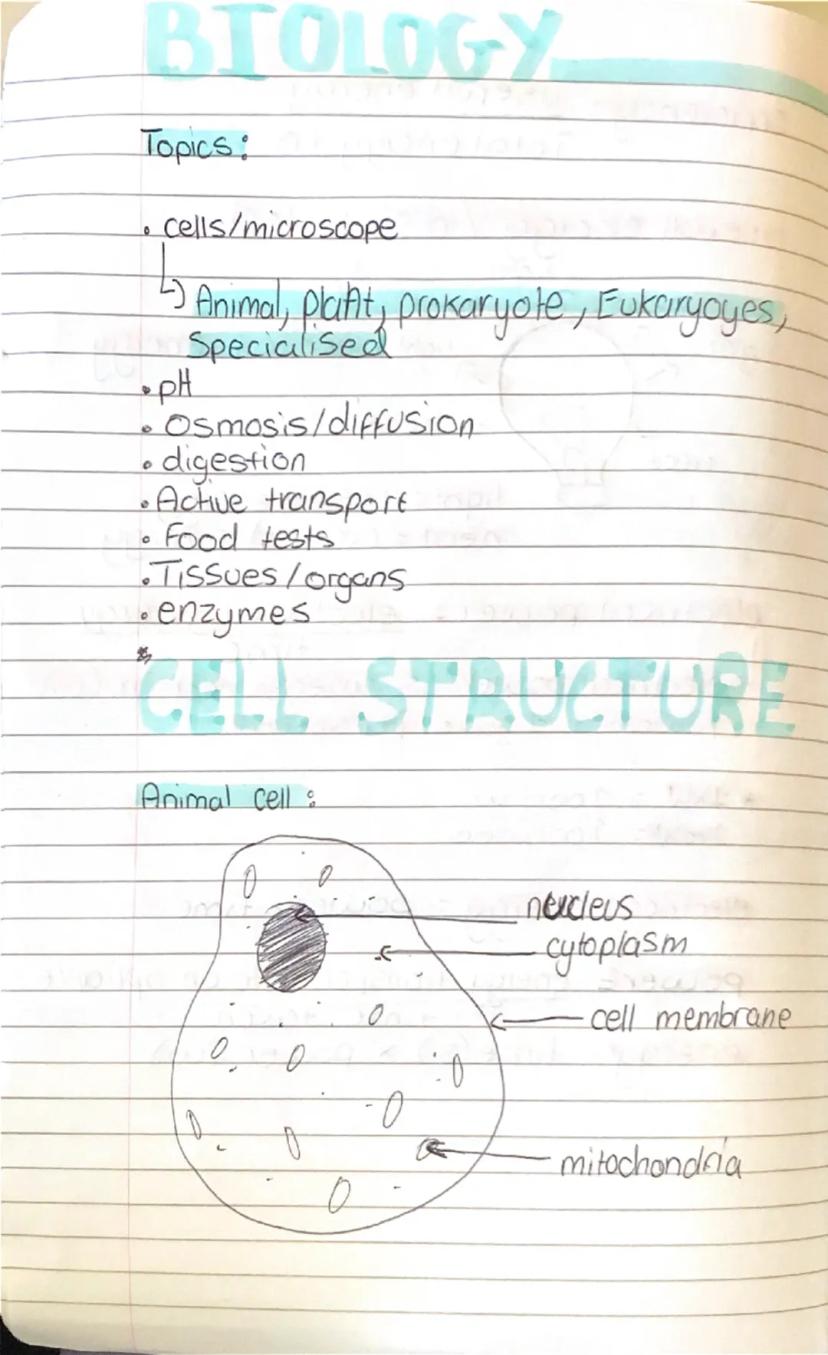 BIOLOGY
Topics:
• cells/microscope
Animal, plant, prokaryote, Eukaryoyes,
Specialised
• pH
• Osmosis/diffusion
• digestion
• Active transport
• Food tests
• Tissues/organs
• enzymes
CELL STRUCTURE
Animal cell:
nucleus
cytoplasm
cell membrane
mitochondria